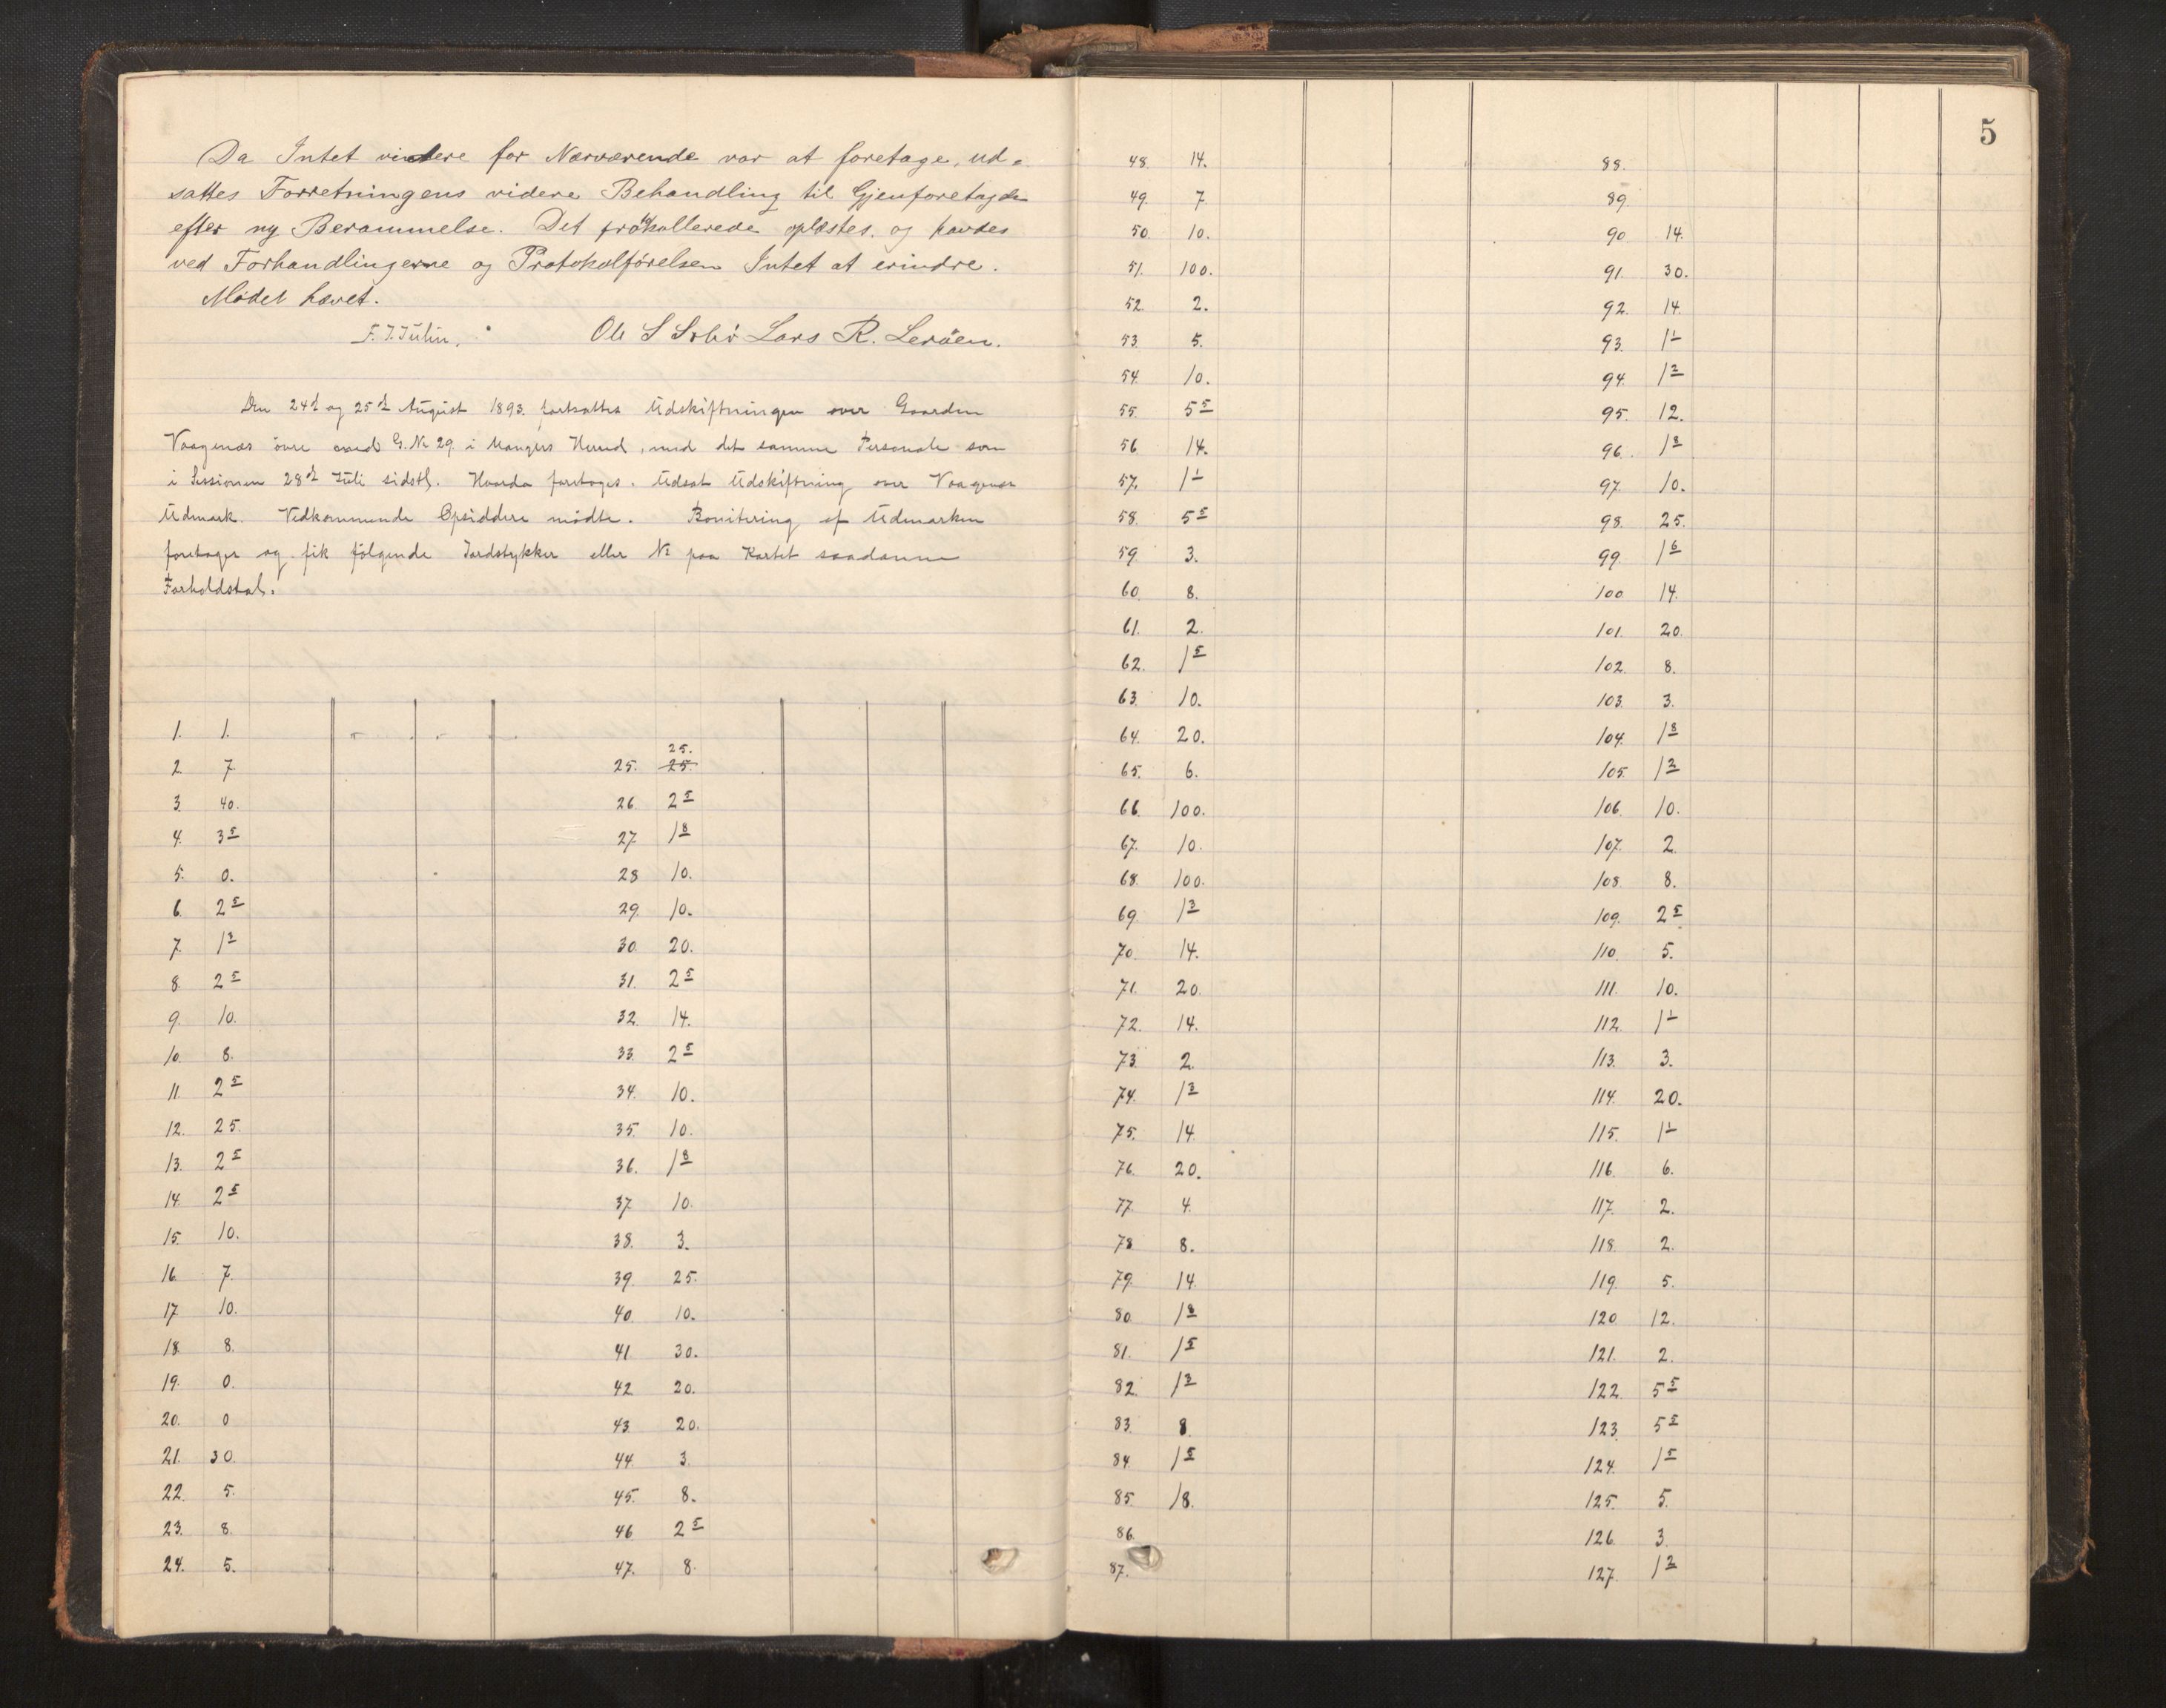 Da Intet videre for Nærværende var at foretage, ud-
sattes Forretningens videre Behandling til Gjenforetagelse
efter ny Berammelse. Det protokollerede oplæstes og havdes
ved Forhandlingerne og Protokolførelsen Intet at erindre.
Mødet hævet.
F. J. Julin. Ole S Lars R. Leröen.
Den 24d og 25d August 1893 fortsattes Udskiftningen over Gaarden
Vaagenæs övre med G.No 29 i Mangers Herred, med det samme Personale som
i Sessionen 28d Juli sidstl. Hvorda foretoges. Udsat Udskiftning over Vaagenæs
Udmark. Vedkommende Opsiddere mödte. Bonitering af Udmarken
foretoges og fik fölgende Jordstykker eller No paa Kartet saadanne
Forholdstal.
1. 1.
2. 7
3. 40.
4. 3 5
5. 0.
6. 2 5
7. 1 3
8. 2 5
9. 10.
10. 8.
11. 2 5
12. 25.
13. 2 5
14. 2 5
15. 10.
16. 7.
17. 10.
18. 8.
19. 0.
20. 0
21. 30.
22. 5.
23. 8.
24. 5.
25.
25. 25.
26. 2 5
27. 1 8
28 10.
29. 10.
30. 20.
31. 2 5
32. 14.
33. 2 5
34. 10.
35. 10.
36. 1 8
37. 10.
38. 3.
39. 25.
40. 10.
41. 30.
42 20.
43. 20.
44. 3.
45. 8.
46 2 5
47. 8.
5
48. 14.
49. 7
50. 10.
51. 100.
52. 2.
53. 5.
54. 10.
55. 5 5
56 14.
57. 1 1
58. 5 5
59. 3.
60. 8.
61. 2.
62. 1 5
63. 10.
64. 20.
65. 6.
66. 100.
67. 10.
68. 100.
69. 1 3
70. 14.
71. 20.
72. 14.
73. 2.
74. 1 3
75. 14.
76. 20.
77. 4.
78. 8.
79. 14.
80. 1 8
81. 1 5
82. 1 3
83. 8
84. 1 5
85. 18.
86.
87.
88.
89.
90 14.
91. 30.
92. 14.
93. 1 1
94. 1 3
95. 12.
96. 1 8
97. 10.
98. 25.
99. 1 6
100. 14.
101. 20.
102. 8.
103. 3.
104. 1 8
105. 1 3
106. 10.
107. 2.
108. 8.
109. 2 5
110. 5.
111. 10.
112. 1 1
113. 3.
114. 20.
115. 1 1
116. 6.
117. 2.
118. 2.
119. 5.
120. 12.
121. 2.
122. 5 5
123. 5 5
124. 1 5
125. 5.
126. 3.
127. 1 3